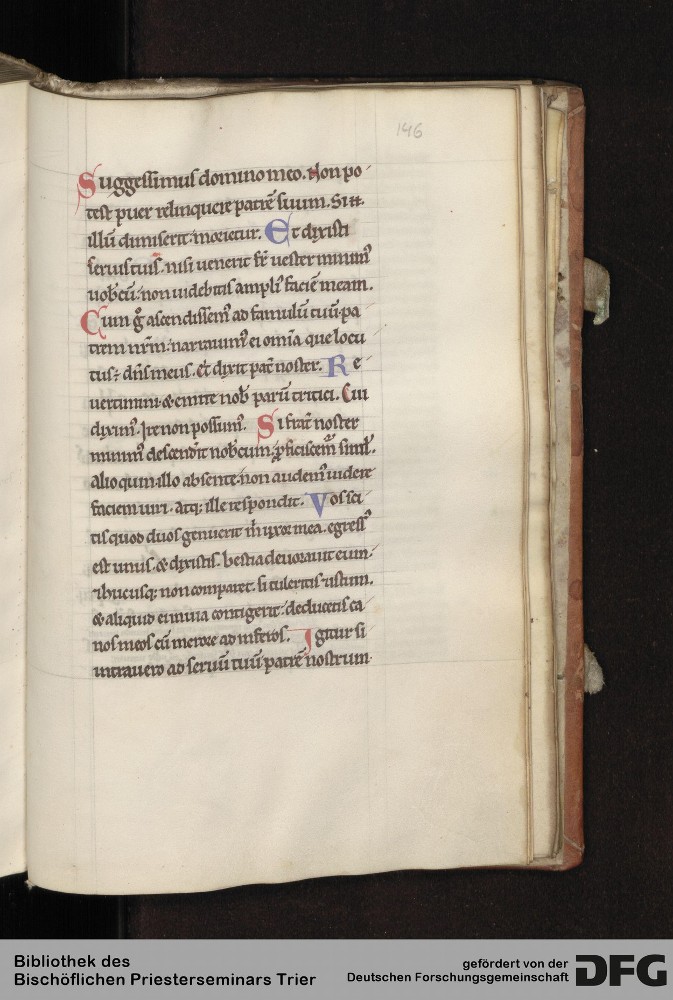 146
Suggessimus domino meo. Non po
test puer relinquere patrē suum. Si eī
illū dimiserit: morietur. Et dixisti
seruis tuis. nisi uenerit fr̄ uester minim᾽
uobcū: non uidebitis ampli᾽ faciē meam.
Cum g᾽ ascendissem᾽ ad famulū tuū pa
trem nr̄m: narrauim᾽ ei om̄ia que locu
tus ÷ dn̄s meus. et dixit pat̄ noster. Re
uertimini & emite nob᾽ parū tritici. Cui
dixim᾽. Ire non possum᾽. Si frat̄ noster
minim᾽ descendit nob᾽cum: ꝓficiscem᾽ simł.
Alioquin illo absente: non audem᾽ uidere
faciem uiri. Atq; ille respondit. Vos sci
tis quod duos genuerit m̄ uxor mea. egress᾽
est unus. & dixistis. bestia deuorauit eum.
& hucusq; non comparet. si tuleritis & istum.
& aliquid ei in uia contigerit: deducetis ca
nos meos cū merore ad inferos. Igitur si
intrauero ad seruū tuū patrē nostrum
Bibliothek des
Bischöflichen Priesterseminars Trier
gefördert von der
Deutschen Forschungsgemeinschaft
DFG